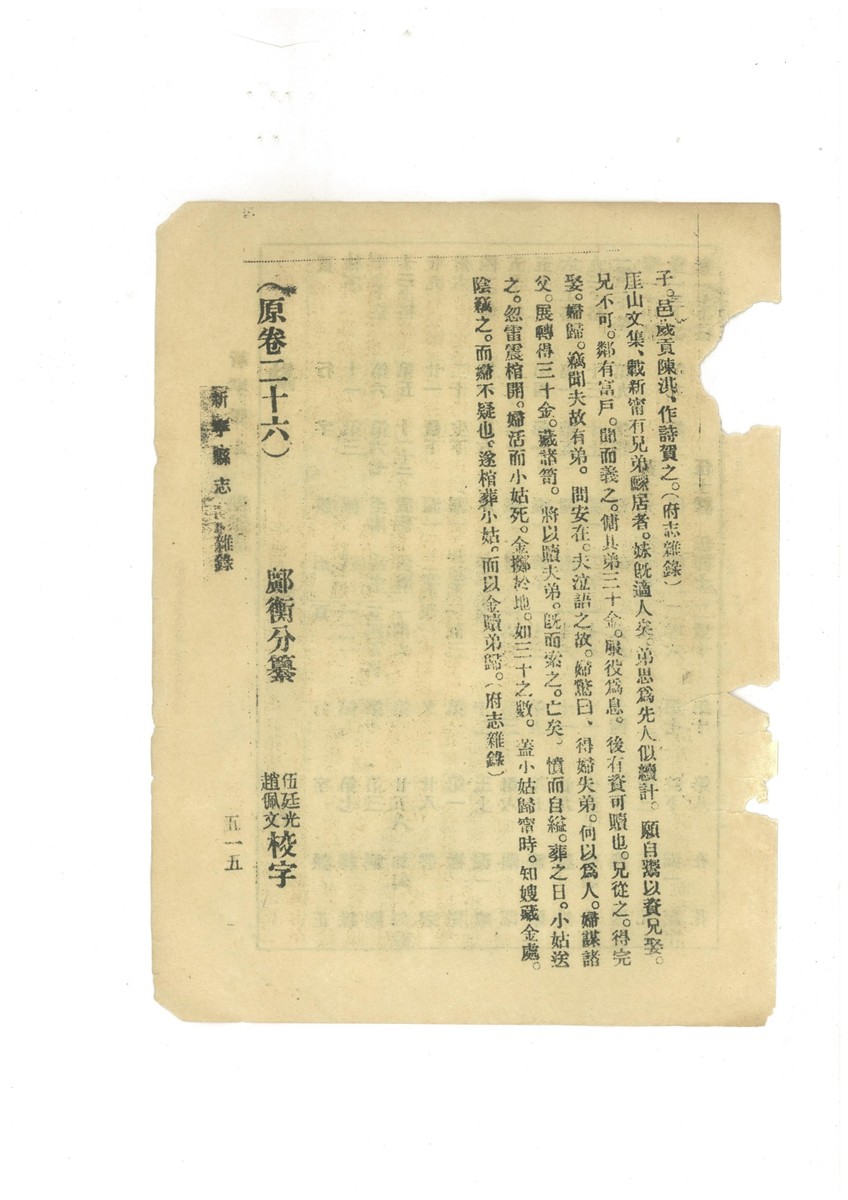 子。邑歲貢陳淇、作詩賀之。(府志雜錄)
厓山文集、載新甯有兄弟鰥居者。妹旣適人矣。弟思爲先人似續計。願自鬻以資兄娶。
兄不可。鄰有富戶。聞而義之。傭其弟三十金。服役爲息。後有資可贖也。兄從之。得完
娶。婦歸。竊聞夫故有弟。問安在。夫泣語之故。婦驚曰、得婦失弟。何以爲人。婦謀諸
父。展轉得三十金。藏諸笥。將以贖夫弟。旣而索之。亡矣。憤而自縊。葬之日。小姑送
之。忽雷震棺開。婦活而小姑死。金擲於地。如三十之數。蓋小姑歸甯時。知嫂藏金處。
陰竊之。而婦不疑也。遂棺葬小姑。而以金贖弟歸。(府志雜錄)
(原卷二十六) 鄺衡分纂 伍廷光 趙佩文 校字
新寧縣志 雜錄 五一五